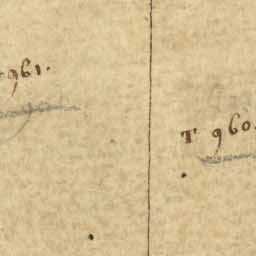 961.
T 960.